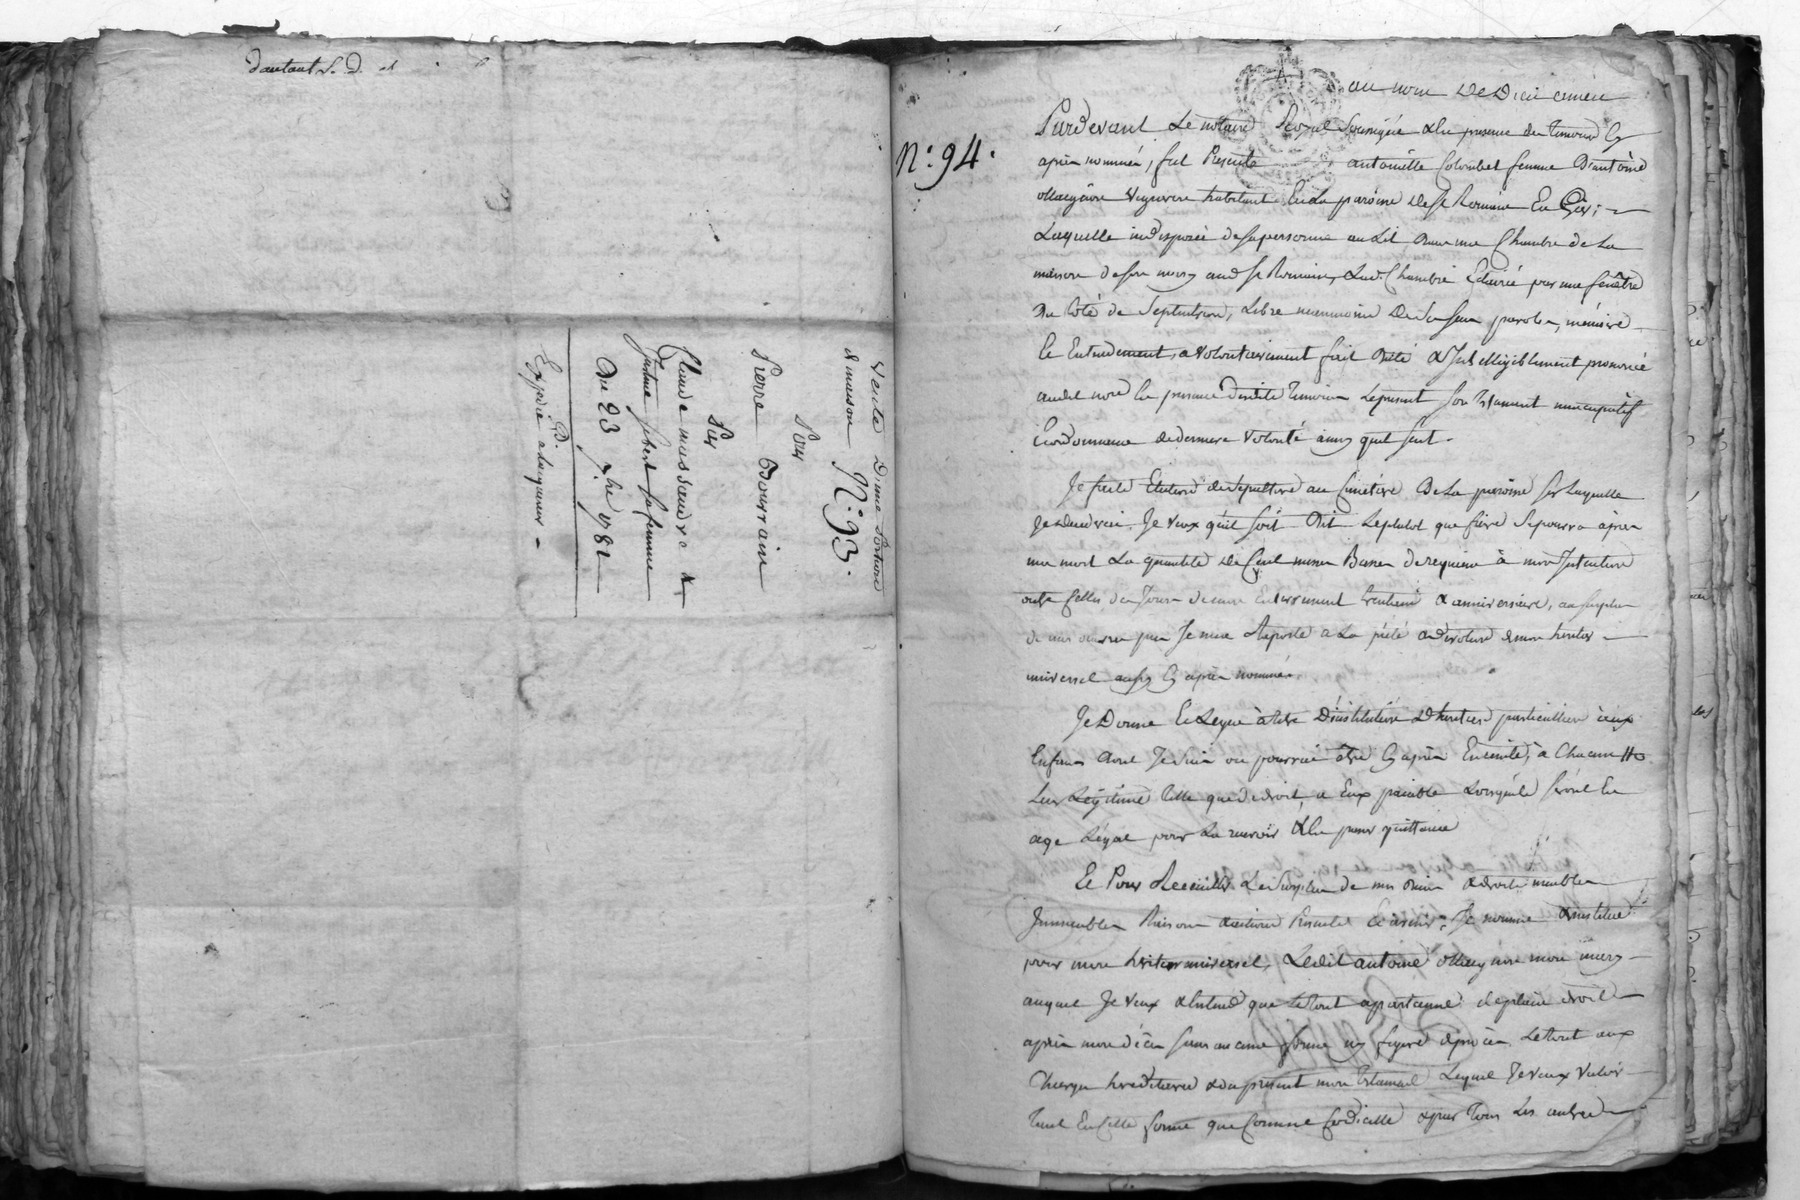 dautant S. D. et
Vente D'une portion
de maison N.° 93.
Pour
Pierre Bourrain
Par
Claude massaudro &
Jeanne Jobert sa femme
Du 23 7.bre 1782
Expédié a lacquereur
N.° 94.
au nom De Dieu amen
Pardevant Le notaire Royal Soussigné & En presence des Temoins Cy
après nommés, fut Presente antoinette Colombet femme D'antoine
vigneron habitant En la paroisse de St Romain En Gier;
Laquelle indisposée de sa personne au Lit dans une Chambre de La
maison de son mary aud. St Romain, Lad. Chambre Eclairée par une fenêtre
Du Côté de Septentrion, Libre neanmoins De ses sens, parole, mémoire
Et Entendement, a volontairement fait dicté & Intelligiblement prononcé
audit no.re En presence desdits Temoins Le present son testament nuncupatif
Et ordonnance de derniere volonté ainsy quil suit.
Je fais Election de Sepulture au Cimetiere De La paroisse sur Laquelle
Je decederai. Je veux qu'il soit Dit Leplutot que faire Se pourra après
ma mort La quantité de Cent messes Basses de requiem à mon Intention
outre Celles des Jours de mon Enterrement trentain & anniversaire, au surplus
de mes œuvres pies Je me Raporte a La piété & devotion de mon heritier
universel aussy Cy après nommé.
Je Donne Et Legue à titre D'institution D'heritiers particuliers aux
Enfans dont Je suis ou pourrai être Cy après Enceinte, à Chacun
Leur Légitime telle que de droit, a Eux paiable Lorsquils seront En
age Légal pour La recevoir & En passer quittance
Et Pour Receuillir Le Surplus de mes Biens & droits meubles
Immeubles Raisons & actions Presents Et avenir, Je nomme & institue
pour mon heritier universel, Ledit antoine mon mary
auquel Je veux & Entend que Le tout apartienne de plein droit
après mon décès sans aucune forme ny figure de procès. Le tout aux
Charges hereditaires & du present mon testament Lequel Je veux valoir
Tant En Cette forme que Comme Codicille & par Tous Les autres